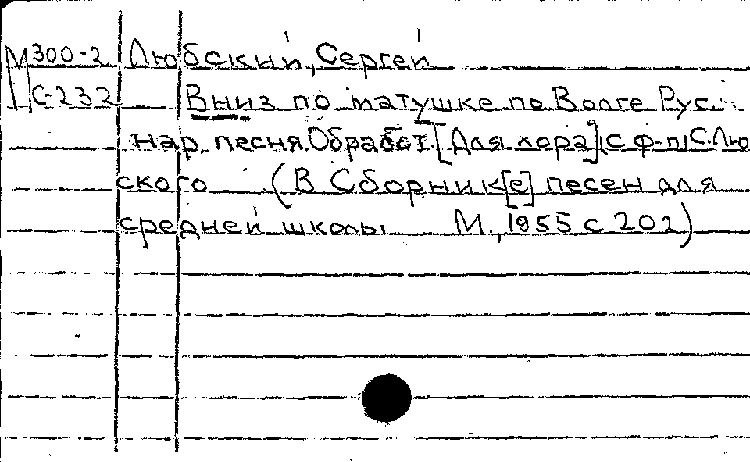 М300-2 Любский, Сергей
С-232 Вниз по матушке по Волге Рус.
нар. песня. Обработ. [Для хора] с ф-п С. Лю
ского (В Сборник[е] песен для
средней школы М., 1955 с 202)